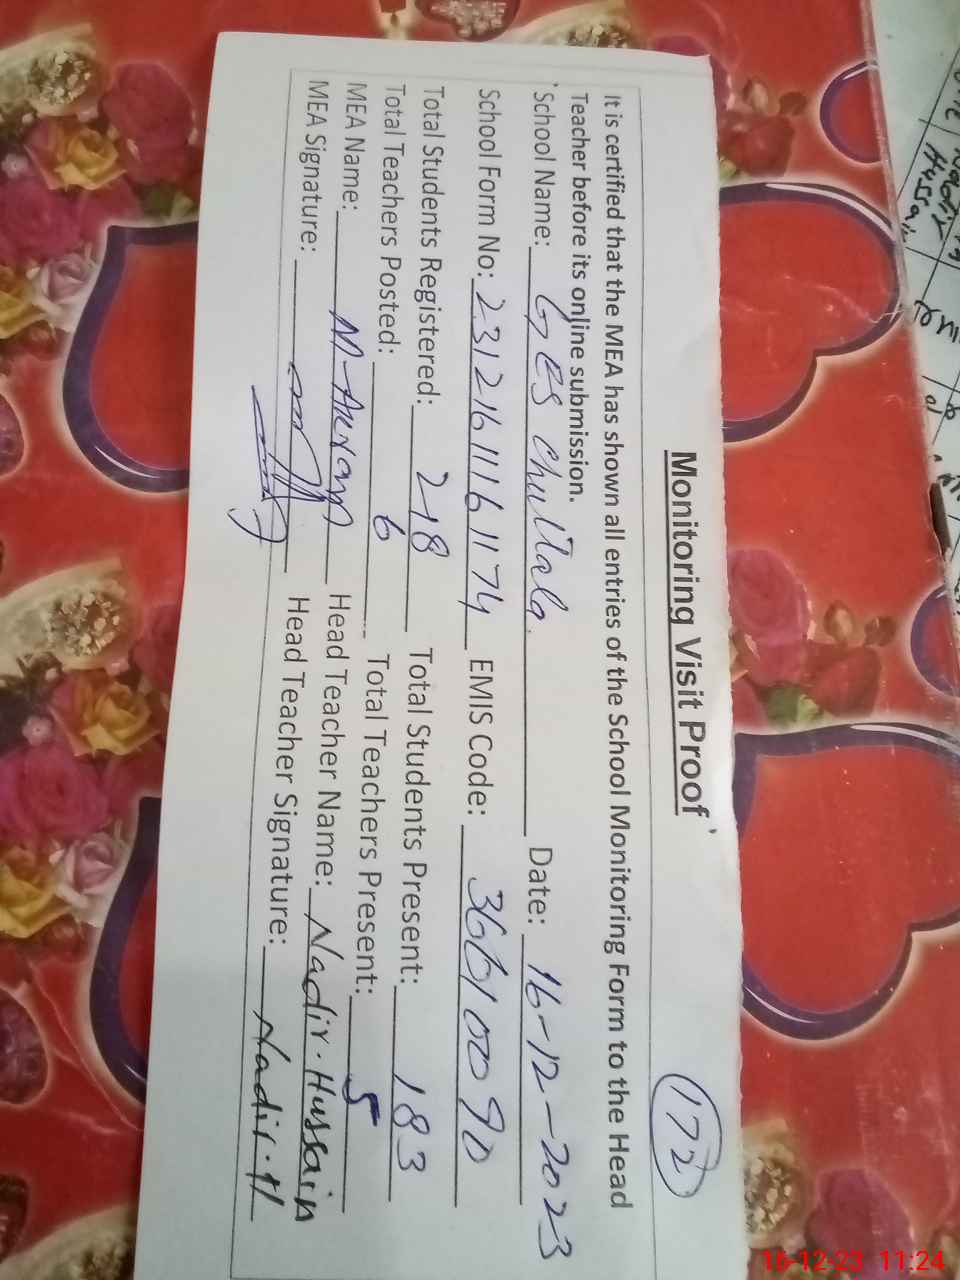 Monitoring Visit Proof
172
It is certified that the MEA has shown all entries of the School Monitoring Form to the Head
Teacher before its online submission.
School Name: GES Chullala Date: 16-12-2023
School Form No: 231216111611174 EMIS Code: 36610090
Total Students Registered: 218 Total Students Present: 183
Total Teachers Posted: 6 Total Teachers Present: 5
MEA Name: Head Teacher Name: Nadir. Hussain
MEA Signature: Head Teacher Signature: Nadir. H
Nadir
Hussai
16-12-23 11:24